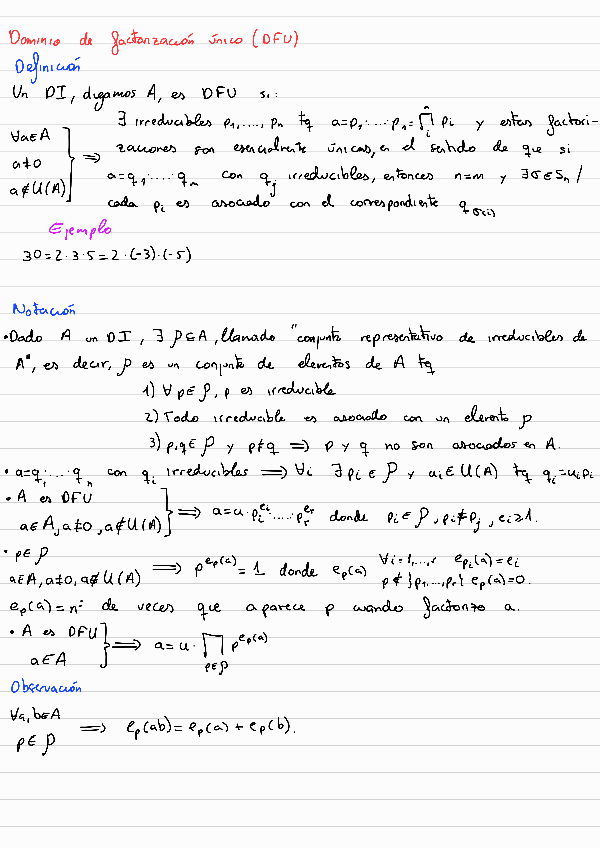 Dominio de factorización único (DFU)
Definición
Un DI, digamos A, es DFU si:
∀a∈A
a≠0
a∉U(A)
⟹
∃ irreducibles p₁,...,pₙ tq a=p₁·...·pₙ=∏ᵢⁿ pᵢ y estas factori-
zaciones son esencialmente únicas, en el sentido de que si
a=q₁·...·qₘ con qⱼ irreducibles, entonces n=m y ∃σ∈Sₙ /
cada pᵢ es asociado con el correspondiente q_σ(i)
Ejemplo
30=2·3·5=2·(-3)·(-5)
Notación
•Dado A un DI, ∃ P⊆A, llamado "conjunto representativo de irreducibles de
A", es decir, P es un conjunto de elementos de A tq
1) ∀p∈P, p es irreducible
2) Todo irreducible es asociado con un elemento p
3) p,q∈P y p≠q ⟹ p y q no son asociados en A.
• a=q₁·...·qₙ con qᵢ irreducibles ⟹ ∀i ∃pᵢ∈P y uᵢ∈U(A) tq qᵢ=uᵢpᵢ
• A es DFU
a∈A, a≠0, a∉U(A)
⟹ a=u·pᵢ^eᵢ·...·pᵣ^eᵣ donde pᵢ∈P, pᵢ≠pⱼ, eᵢ≥1.
• p∈P
a∈A, a≠0, a∉U(A)
⟹ p^eₚ(a)=1 donde eₚ(a)
∀i=1,...,r eₚᵢ(a)=eᵢ
p∉{p₁,...,pᵣ} eₚ(a)=0.
eₚ(a)=nº de veces que aparece p cuando factorizo a.
• A es DFU
a∈A
⟹ a=u·∏_{p∈P} p^eₚ(a)
Observación
∀a,b∈A
p∈P
⟹ eₚ(ab)=eₚ(a)+eₚ(b).